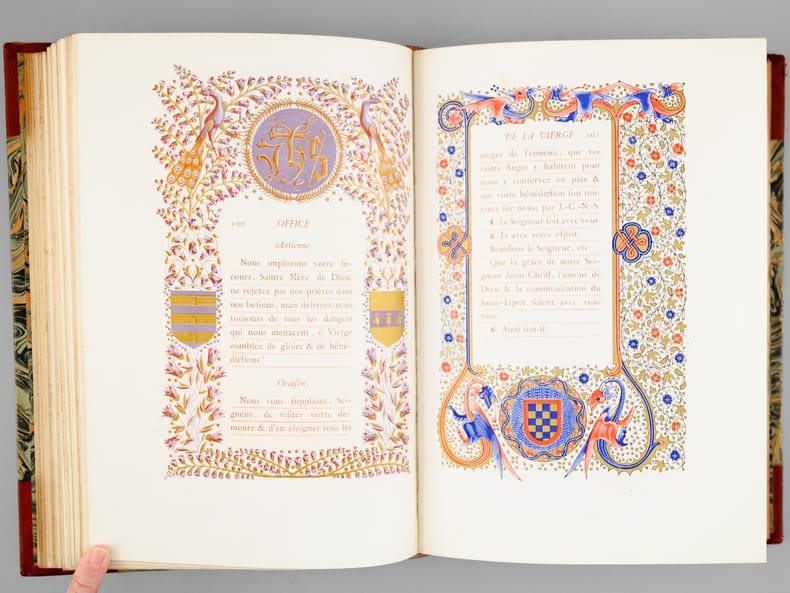 Jhs
100 OFFICE
Antienne.
Nous implorons votre ſe-
cours, Sainte Mère de Dieu,
ne rejetez pas nos prières dans
nos beſoins, mais délivrez-nous
toujours de tous les dangers
qui nous menacent, ô Vierge
comblée de gloire & de béné-
dictions!
Oraiſon
Nous vous ſupplions, Sei-
gneur, de viſiter notre de-
meure & d'en éloigner tous les
DE LA VIERGE 101
pieges de l'ennemi; que vos
ſaints Anges y habitent pour
nous y conſerver en paix &
que votre bénédiction ſoit tou-
jours ſur nous; par J.-C.-N.-S
℣. Le Seigneur ſoit avec vous
℟. Et avec votre eſprit.
Beniſſons le Seigneur, etc
Que la grâce de notre Sei-
gneur Jéſus-Chriſt, l'amour de
Dieu & la communication du
Saint-Eſprit ſoient avec vous
tous.
℟. Ainſi ſoit-il.